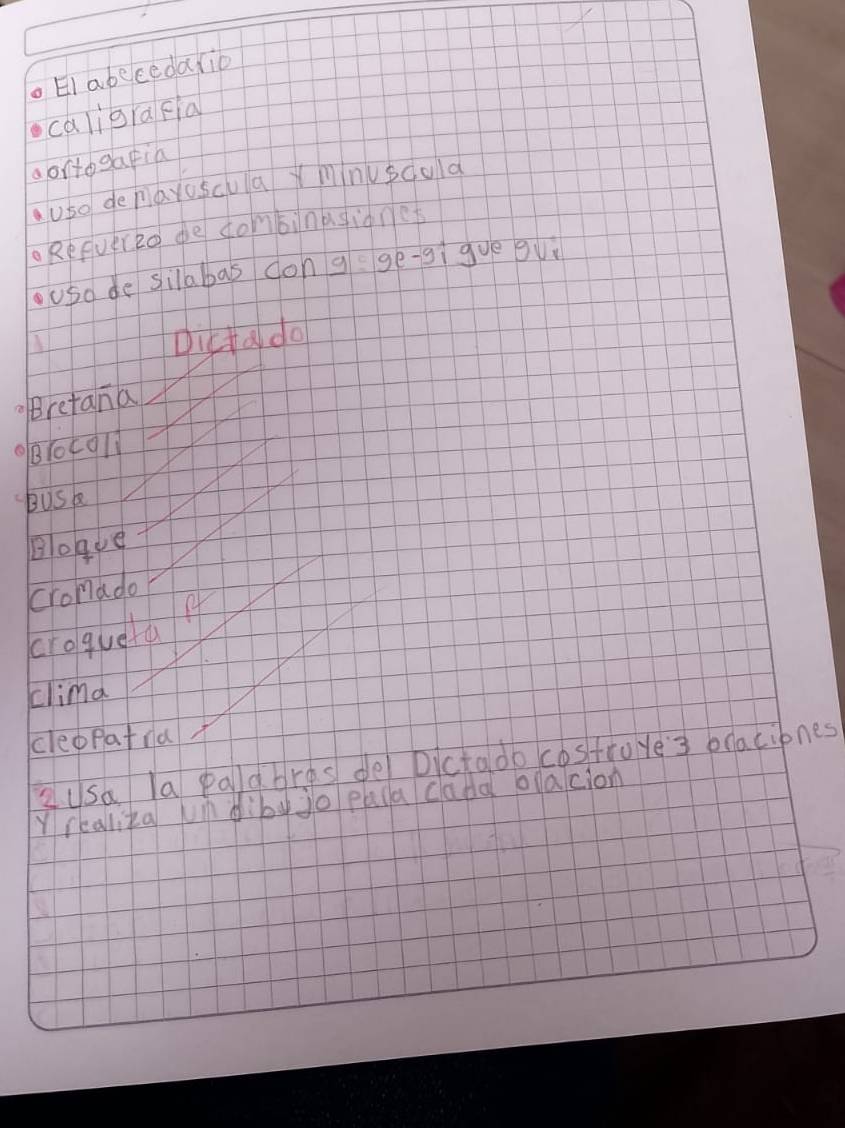 El abececedario
caligrafia
ortogafia
uso de mayuscula y minuscula
Refuerzo de combinasiones
uso de silabas con g = ge-gi gue gui
Dictado
Bretaña
Brocoli
Busa
Bloque
cromado
croqueta
clima
cleopatra
2 usa la palabras del Dictado costruye 3 oraciones
y realiza un dibujo para cada oracion